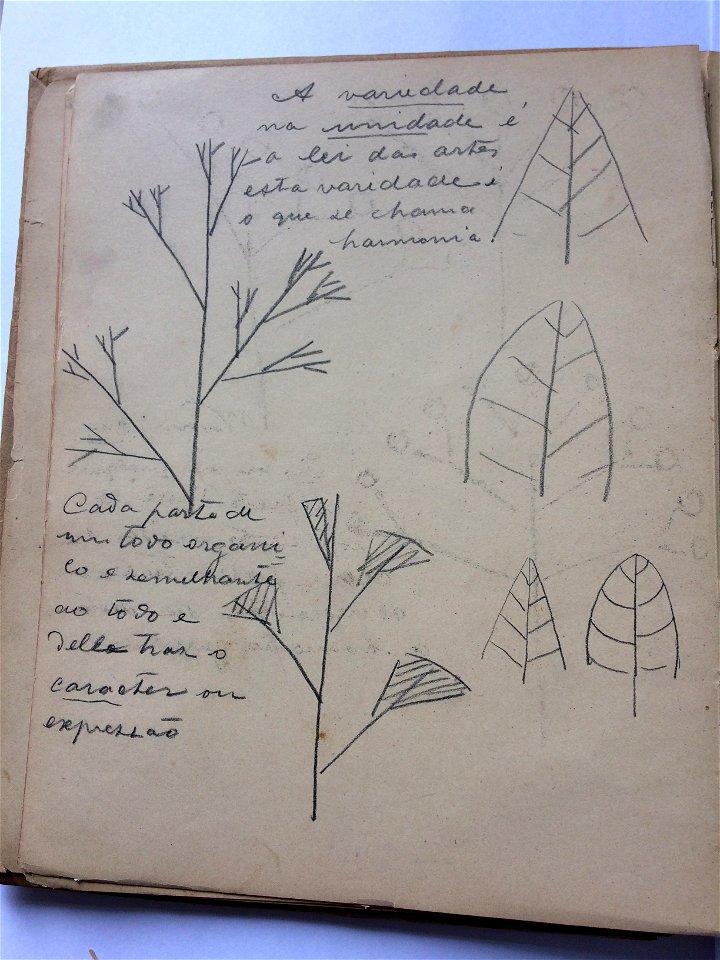 A variedade
na unidade é
a lei das artes
esta varidade é
o que se chama
harmonia.
Cada parte de
um todo organi-
co e semelhante
ao todo e
delle traz o
caracter ou
expressão